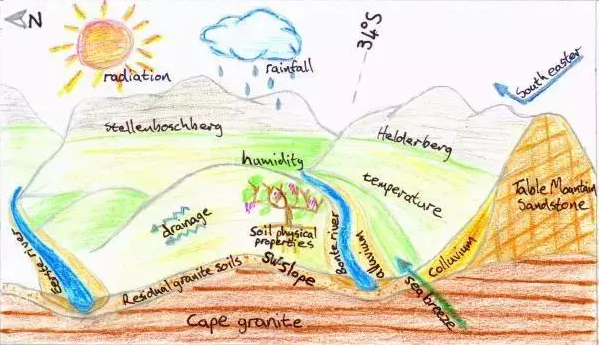 N
radiation
rainfall
34°S
South easter
Stellenboschberg
Helderberg
humidity
temperature
Table Mountain
Sandstone
drainage
Soil physical
properties
Eerste river
Bonte river
alluvium
Colluvium
Residual granite soils
SW slope
sea breeze
Cape granite